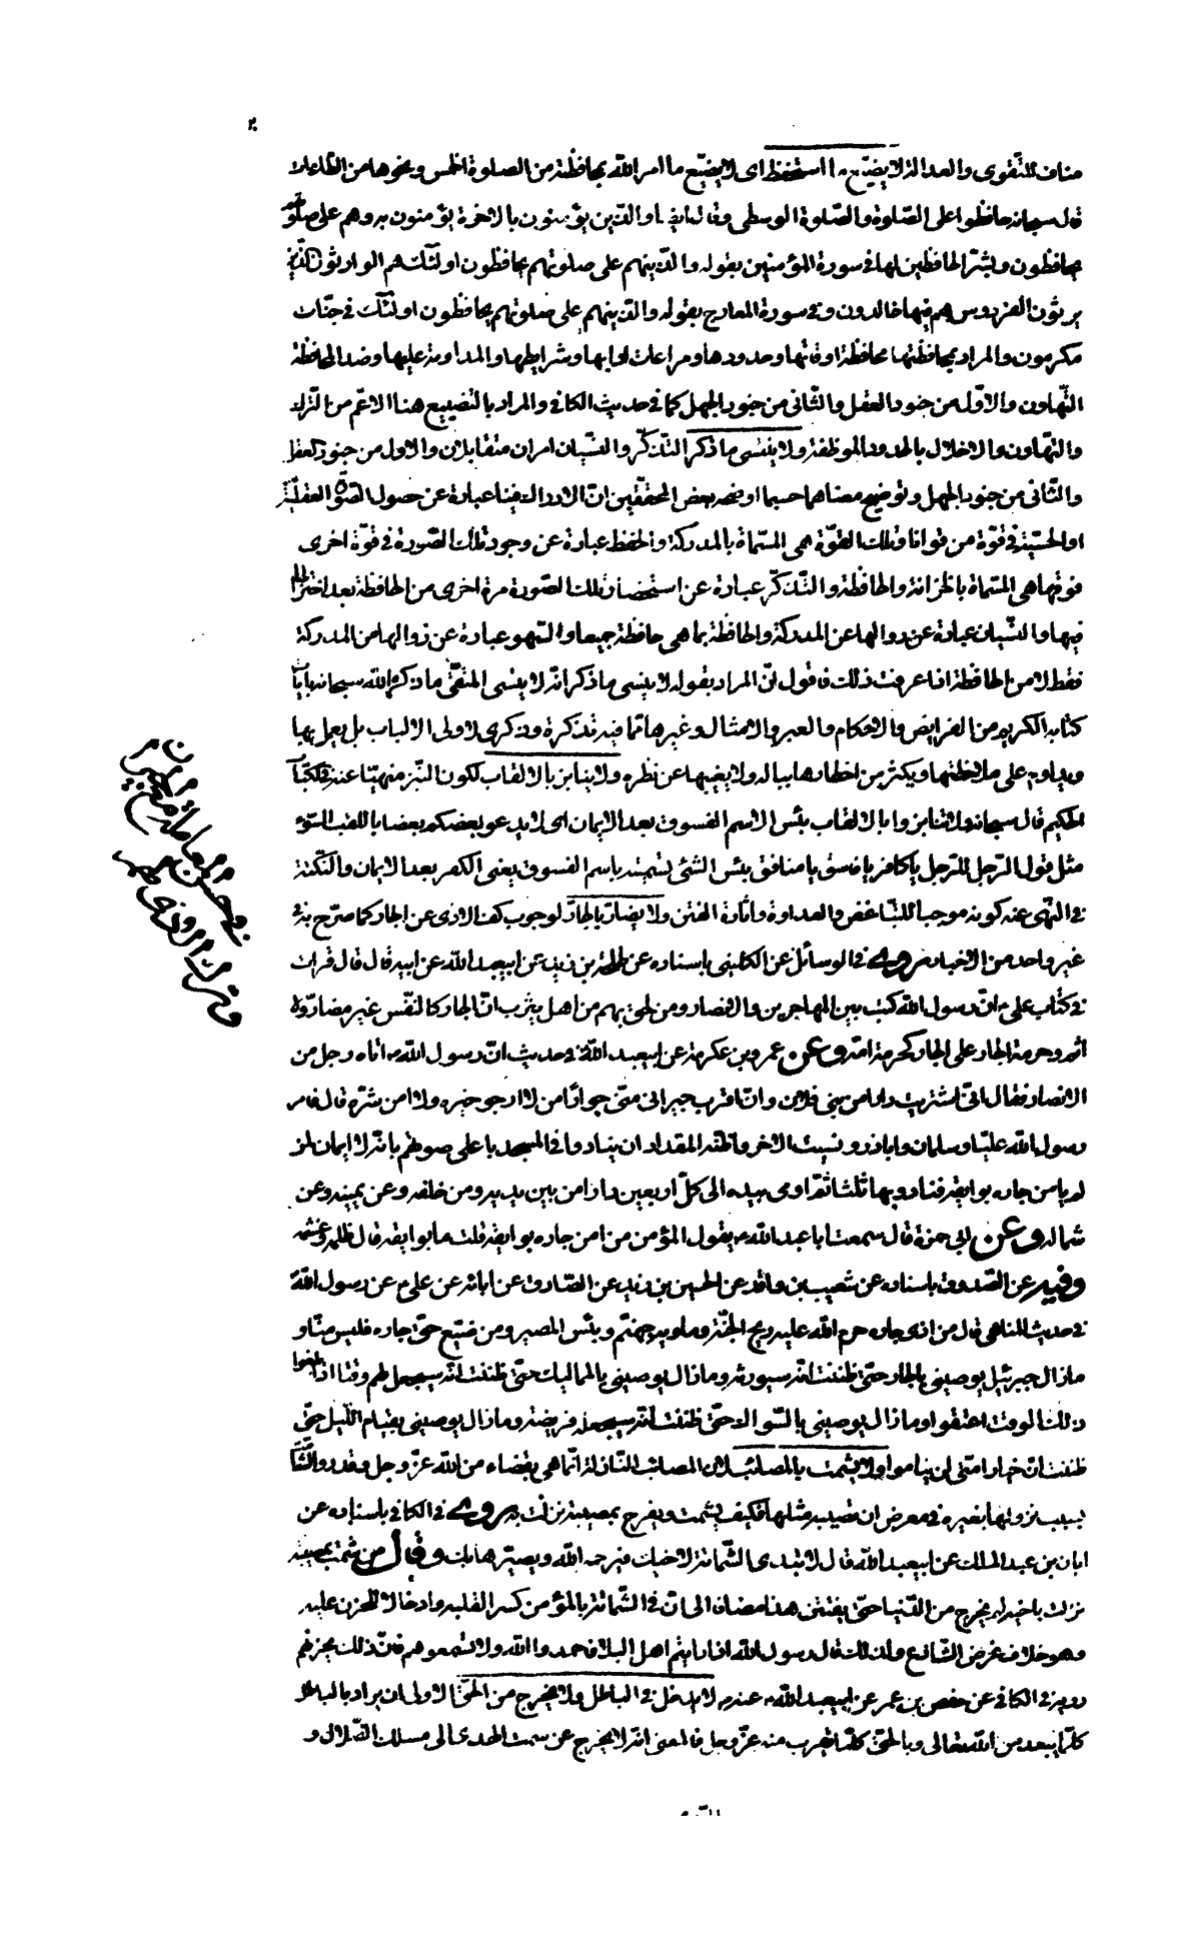 مناف للتّقوى والعدالة لا يضيّع ما استحفظ اى لا يضيّع ما امر اللّه بمحافظته من الصلوة الخمس ونحوها من الطّاعات
قال سبحانه حافظوا على الصّلوة والصّلوة الوسطى وقال ايضا والّذين يؤمنون بالاخرة يؤمنون به وهم على صلوتهم
يحافظون وبشّر الحافظين لها في سورة المؤمنين بقوله والّذينهم على صلوتهم يحافظون اولئك هم الوارثون الّذين
يرثون الفردوس هم فيها خالدون وفي سورة المعارج بقوله والّذينهم على صلوتهم يحافظون اولئك في جنّات
مكرمون والمراد بمحافظتها محافظة اوقاتها وحدودها ومراعات ادابها وشرايطها والمداومة عليها وضد المحافظة
التّهاون والاوّل من جنود العقل والثّانى من جنود الجهل كما في حديث الكافي والمراد بالتضييع هنا الاعمّ من التّرك
والتّهاون والاخلال بالحدود الموظفة ولا ينسى ما ذكر التّذكّر والنّسيان امران متقابلان والاول من جنود العقل
والثّانى من جنود الجهل وتوضيح معناهما حسبما اوضحه بعض المحقّقين انّ الادراك فينا عبارة عن حصول الصّورة العقليّة
او الحسّية في قوّة من قوانا وتلك القوّة هى المسمّاة بالمدركة والحفظ عبارة عن وجود تلك الصّورة في قوّة اخرى
فوقها هى المسمّاة بالخزانة والحافظة والتّذكّر عبارة عن استحضار تلك الصّورة مرة اخرى من الحافظة بعد اختزانها
فيها والنّسيان عبارة عن زوالها عن المدركة والحافظة بما هى حافظة جميعا والسّهو عبارة عن زوالها من المدركة
فقط لا من الحافظة اذا عرفت ذلك فاقول انّ المراد بقوله لا ينسى ما ذكر انّه لا ينسى المتّقى ما ذكره اللّه سبحانه بايات
كتابه الكريم من الفرايض والاحكام والعبر والامثال وغيرها ممّا فيه تذكرة وذكرى لاولى الالباب بل يعمل بها
ويداوم على ملاحظتها ويكثر من اخطارها بباله ولا يغيبها عن نظره ولا ينابز بالالقاب لكون النّبز منهيّا عنه في الكتاب
الحكيم قال سبحانه ولا تنابزوا بالالقاب بئس الاسم الفسوق بعد الايمان اى لا يدعو بعضكم بعضا باللقب السّوء
مثل قول الرّجل للرّجل يا كافر يا فاسق يا منافق بئس الشئ تسميته باسم الفسوق يعنى الكفر بعد الايمان والنّكتة
في النّهى عنه كونه موجبا للتّباغض والعداوة واثارة الفتن ولا يضارّ بالجار لوجوب كفّ الاذى عن الجار كما صرّح به في
غير واحد من الاخبار روى في الوسائل عن الكلينى باسناده عن طلحة بن زيد عن ابيعبد اللّه عن ابيه قال قال قرات
في كتاب على ع انّ رسول اللّه كتب بين المهاجرين والانصار ومن لحق بهم من اهل يثرب انّ الجار كالنّفس غير مضارّ ولا
اثم وحرمة الجار على الجار كحرمة امّه وعن عمرو بن عكرمة عن ابيعبد اللّه في حديث انّ رسول اللّه ص اتاه رجل من
الانصار فقال انّى اشتريت دارا من بنى فلان وانّ اقرب جيرانى منّى جوارا من لا ارجو خيره ولا امن شرّه قال فامر
رسول اللّه عليّا وسلمان واباذر ونسيت الاخر واظنّه المقداد ان ينادوا في المسجد باعلى صوتهم بانّه لا ايمان لمن
لم يامن جاره بوايقه فنادوا بها ثلثا ثمّ اومى بيده الى كلّ اربعين دارا من بين يديه ومن خلفه وعن يمينه وعن
شماله وعن ابى حمزة قال سمعت ابا عبد اللّه ع يقول المؤمن من امن جاره بوايقه قلت ما بوايقه قال ظلمه وغشمه
وفيه عن الصّدوق باسناده عن شعيب بن واقد عن الحسين بن زيد عن الصّادق عن ابائه عن على ع عن رسول اللّه
في حديث المناهى قال من اذى جاره حرم اللّه عليه ريح الجنّة وماويه جهنّم وبئس المصير ومن ضيّع حقّ جاره فليس منّا و
ما زال جبرئيل يوصينى بالجار حتّى ظننت انّه سيورثه وما زال يوصينى بالمماليك حتّى ظننت انّه سيجعل لهم وقتا اذا بلغوا
ذلك الوقت اعتقوا وما زال يوصينى بالسّواك حتّى ظننت انّه سيجعله فريضة وما زال يوصينى بقيام اللّيل حتّى
ظننت انّ خيار امّتى لن يناموا ولا يشمت بالمصائب لانّ المصائب النّازلة انّما هى بقضاء من اللّه عزّ وجل وقدر والشّامت
بسبب نزولها بغيره في معرض ان تصيبه مثلها فكيف يشمت ويفرح بمصيبة نزلت به روى في الكافي باسناده عن
ابان بن عبد الملك عن ابيعبد اللّه قال لا تبدى الشّماتة لاخيك فيرحمه اللّه ويصيّرها بك وقال من شمت بمصيبة
نزلت باخيه لم يخرج من الدّنيا حتّى يفتتن هذا مضافا الى انّ في الشّماتة بالمؤمن كسر القلبه وادخالا للحزن عليه
وهو خلاف غرض الشّارع ولذلك قال رسول اللّه اذا رايتم اهل البلاء فاحمدوا اللّه ولا تسمعوهم فانّ ذلك يحزنهم
رويه في الكافي عن حفص بن عمر عن ابيعبد اللّه ع عنه ص لا يدخل في الباطل ولا يخرج من الحقّ الاولى ان يراد بالباطل
كلّما يبعد من اللّه تعالى وبالحقّ كلّما يقرب منه عزّ وجل فالمعنى انّه لا يخرج عن سمت الهدى الى مسلك الضّلال و